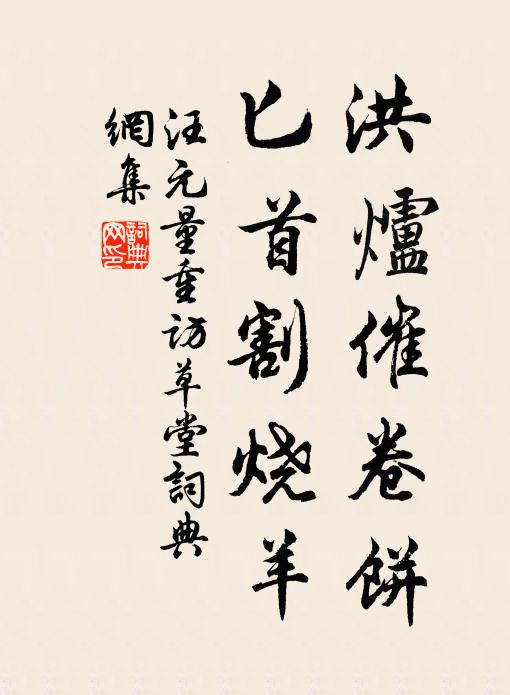 洪爐催卷餅
匕首割烧羊
汪元量重访草堂詞典
網集
詞典
网印